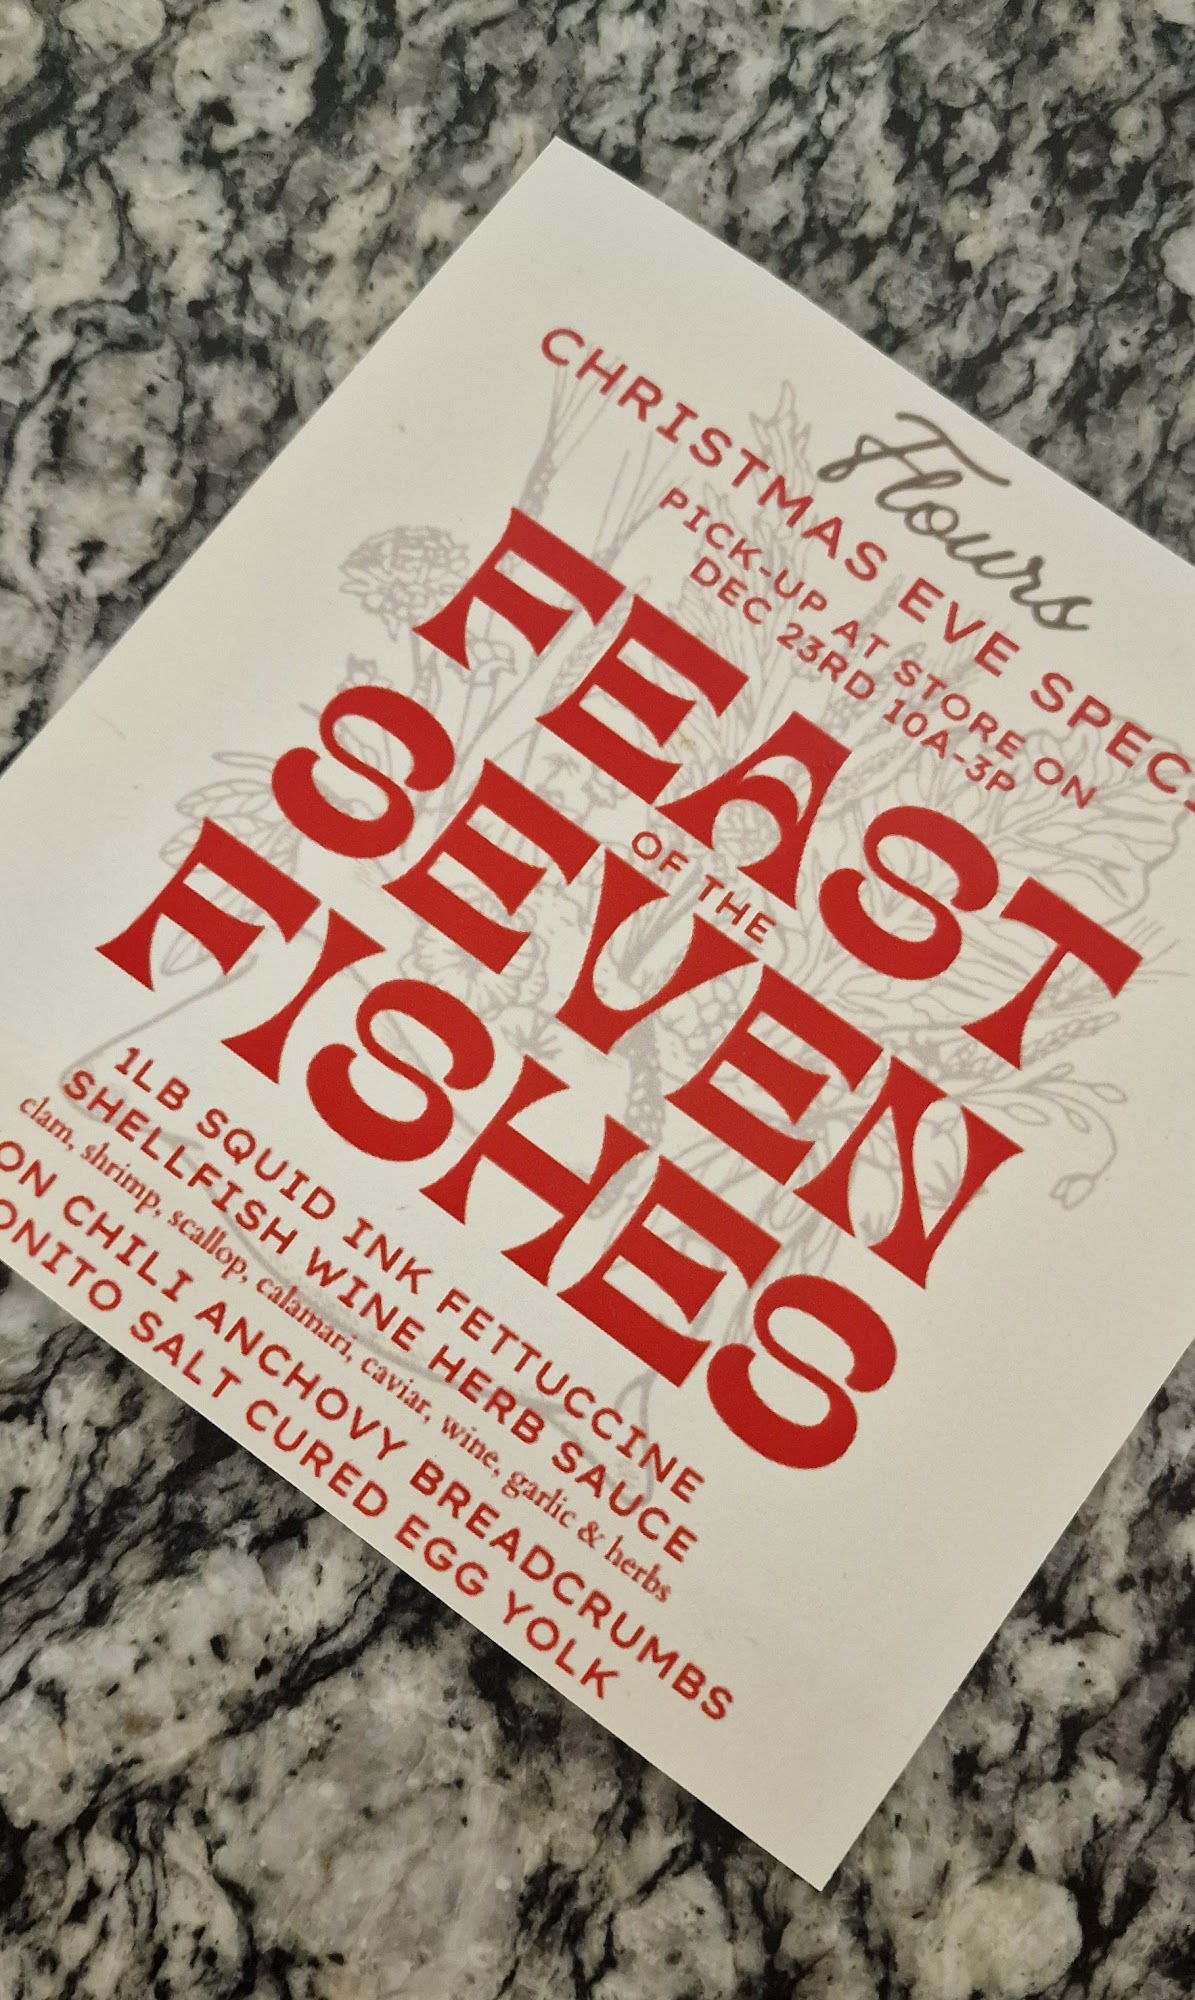 Flours
CHRISTMAS EVE SPECI
PICK-UP AT STORE ON
DEC 23RD 10A-3P
FEAST
OF THE
SEVEN
FISHES
1LB SQUID INK FETTUCCINE
SHELLFISH WINE HERB SAUCE
clam, shrimp, scallop, calamari, caviar, wine, garlic & herbs
ON CHILI ANCHOVY BREADCRUMBS
ONITO SALT CURED EGG YOLK